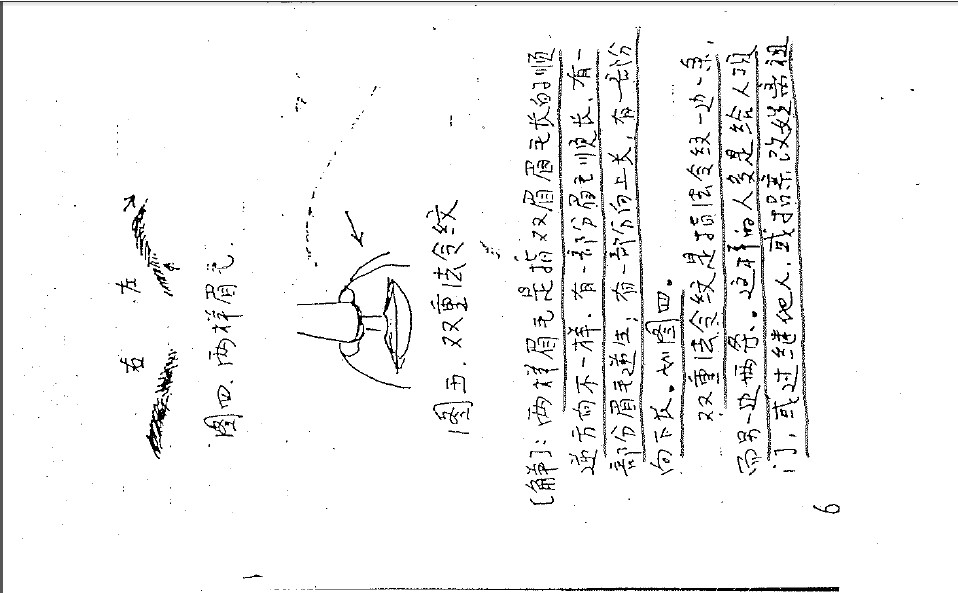 右 左
图四.两样眉毛.
图五.双重法令纹
[解]:两样眉毛是指双眉眉毛长的顺
逆方向不一样.有一部分眉毛顺长,有一
部分眉毛逆生;有一部分向上长,有一部份
向下长。如图四。
双重法令纹是指法令纹一边一条,
而另一边两条..这样的人多是给人顶
门,或过继他人,或招亲改姓卖祖
6